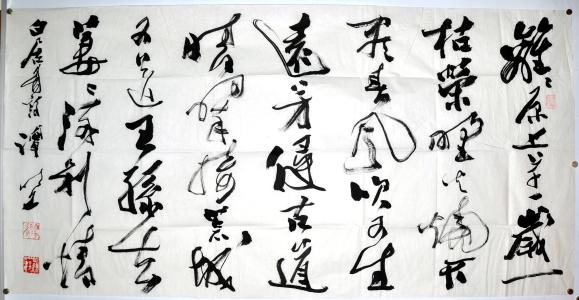 離々原上草一歲一
枯榮野火燒不
盡春風吹又生
遠芳侵古道
晴翠接荒城
又送王孫去
萋々滿別情
白居易詩譚